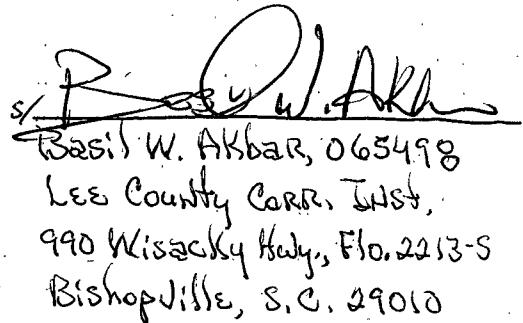 s/ Basil W. Akbar
Basil W. AKbaR, 065498
LEE COUNTY CORR. INST,
990 Wisacky Hwy., Flo. 2213-S
Bishopville, S.C. 29010